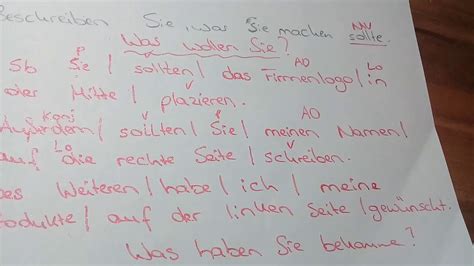 Beschreiben Sie, was Sie machen sollte.
NAV
Was wollen Sie?
P AO Lo
Sb Sie | sollten | das Firmenlogo | in
der Mitte | plazieren.
Konj V P AO
Außerdem | sollten | Sie | meinen Namen |
Lo V
auf die rechte Seite | schreiben.
Des Weiteren | habe | ich | meine
Produkte | auf der linken Seite | gewünscht.
Was haben Sie bekomme?